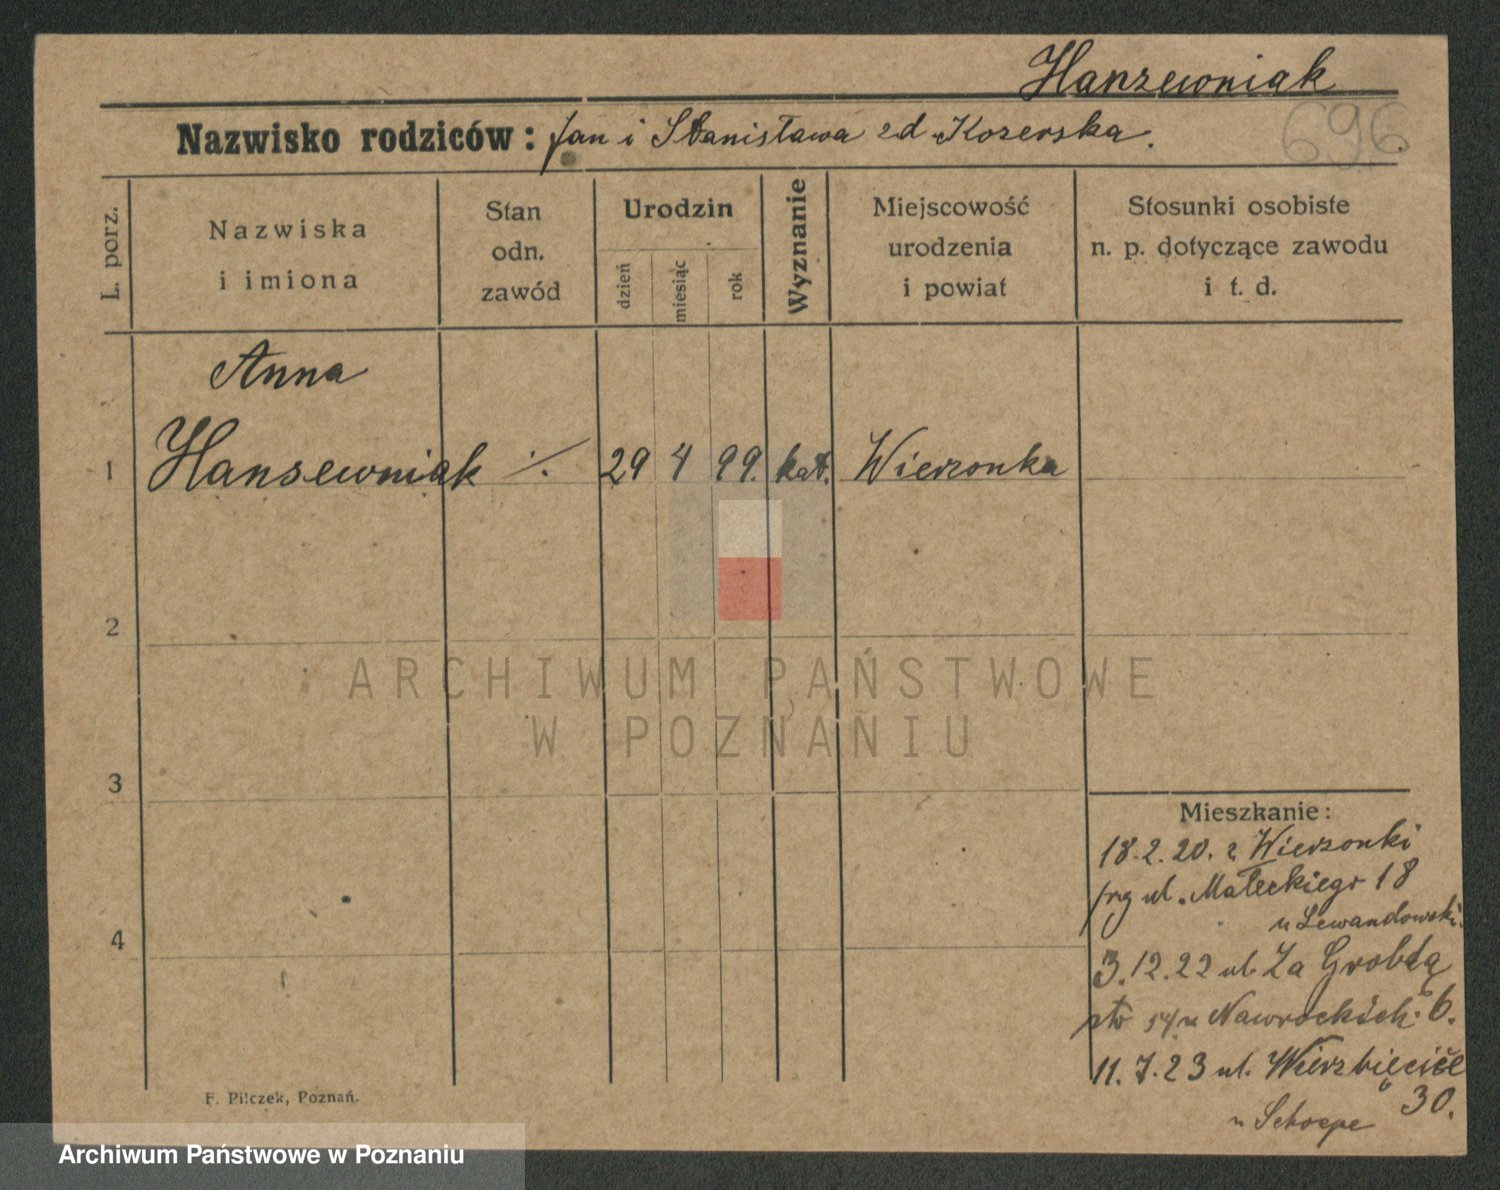 Hanzewniak
Nazwisko rodziców: Jan i Stanisława zd Kozerska.
696
L. porz.
Nazwiska
i imiona
Stan
odn.
zawód
Urodzin
dzień
miesiąc
rok
Wyznanie
Miejscowość
urodzenia
i powiat
Stosunki osobiste
n. p. dotyczące zawodu
i t. d.
Anna
1 Hansewniak ·/. 29 4 99. kat. Wierzonka
2
ARCHIWUM PAŃSTWOWE
W POZNANIU
3
Mieszkanie:
18.2.20. z Wierzonki
ul. Małeckiego 18
u Lewandowski.
4
3.12.22 ul. Za Groblą
u Nawrockich 6.
11.7.23 ul. Wierzbięcice
30.
u Schoepe
F. Pilczek, Poznań.
Archiwum Państwowe w Poznaniu